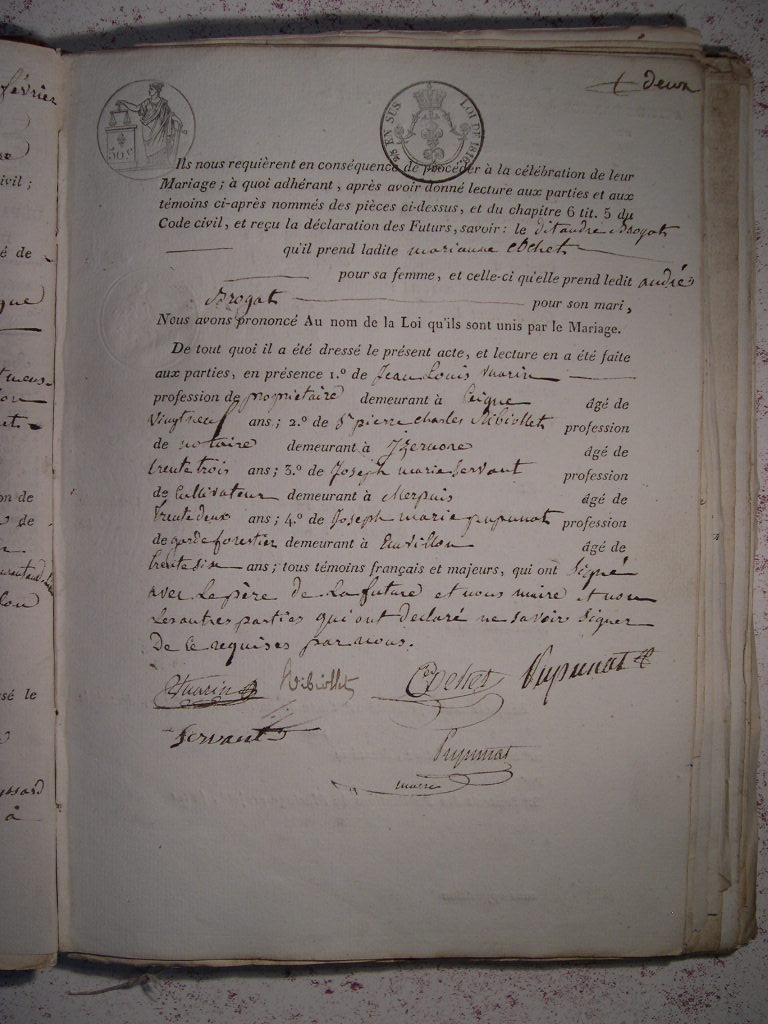 + deux
février
50.c
EN SUS
LOI DE 1816
Ils nous requièrent en conséquence de procéder à la célébration de leur
Mariage ; à quoi adhérant, après avoir donné lecture aux parties et aux
témoins ci-après nommés des pièces ci-dessus, et du chapitre 6 tit. 5 du
Code civil, et reçu la déclaration des Futurs, savoir : le dit andré Brogat
ivil ;
qu'il prend ladite marianne Cochet
é de
pour sa femme, et celle-ci qu'elle prend ledit andré
que
Brogat pour son mari,
Nous avons prononcé Au nom de la Loi qu'ils sont unis par le Mariage.
De tout quoi il a été dressé le présent acte, et lecture en a été faite
aux parties, en présence 1.º de Jean Louis tuarin
profession de propriétaire demeurant à Ceigne âgé de
vingt neuf ans ; 2.º de Sr pierre charles Nibiollet profession
de notaire demeurant à Izernore âgé de
trente trois ans ; 3.º de Joseph marie Servant profession
on de
de Cultivateur demeurant à Merpuis âgé de
de
trente deux ans ; 4.º de Joseph marie pupunat profession
de garde forestier demeurant à Emvillon âgé de
trente six ans ; tous témoins français et majeurs, qui ont Signé
avec Le père de La future et nous maire et non
Les autres parties qui ont declaré ne savoir Signer
De ce requises par nous.
sé le
tuarin Nibiollet Cochet Pupunat
Servant
Pupunat
maire
ssard
à